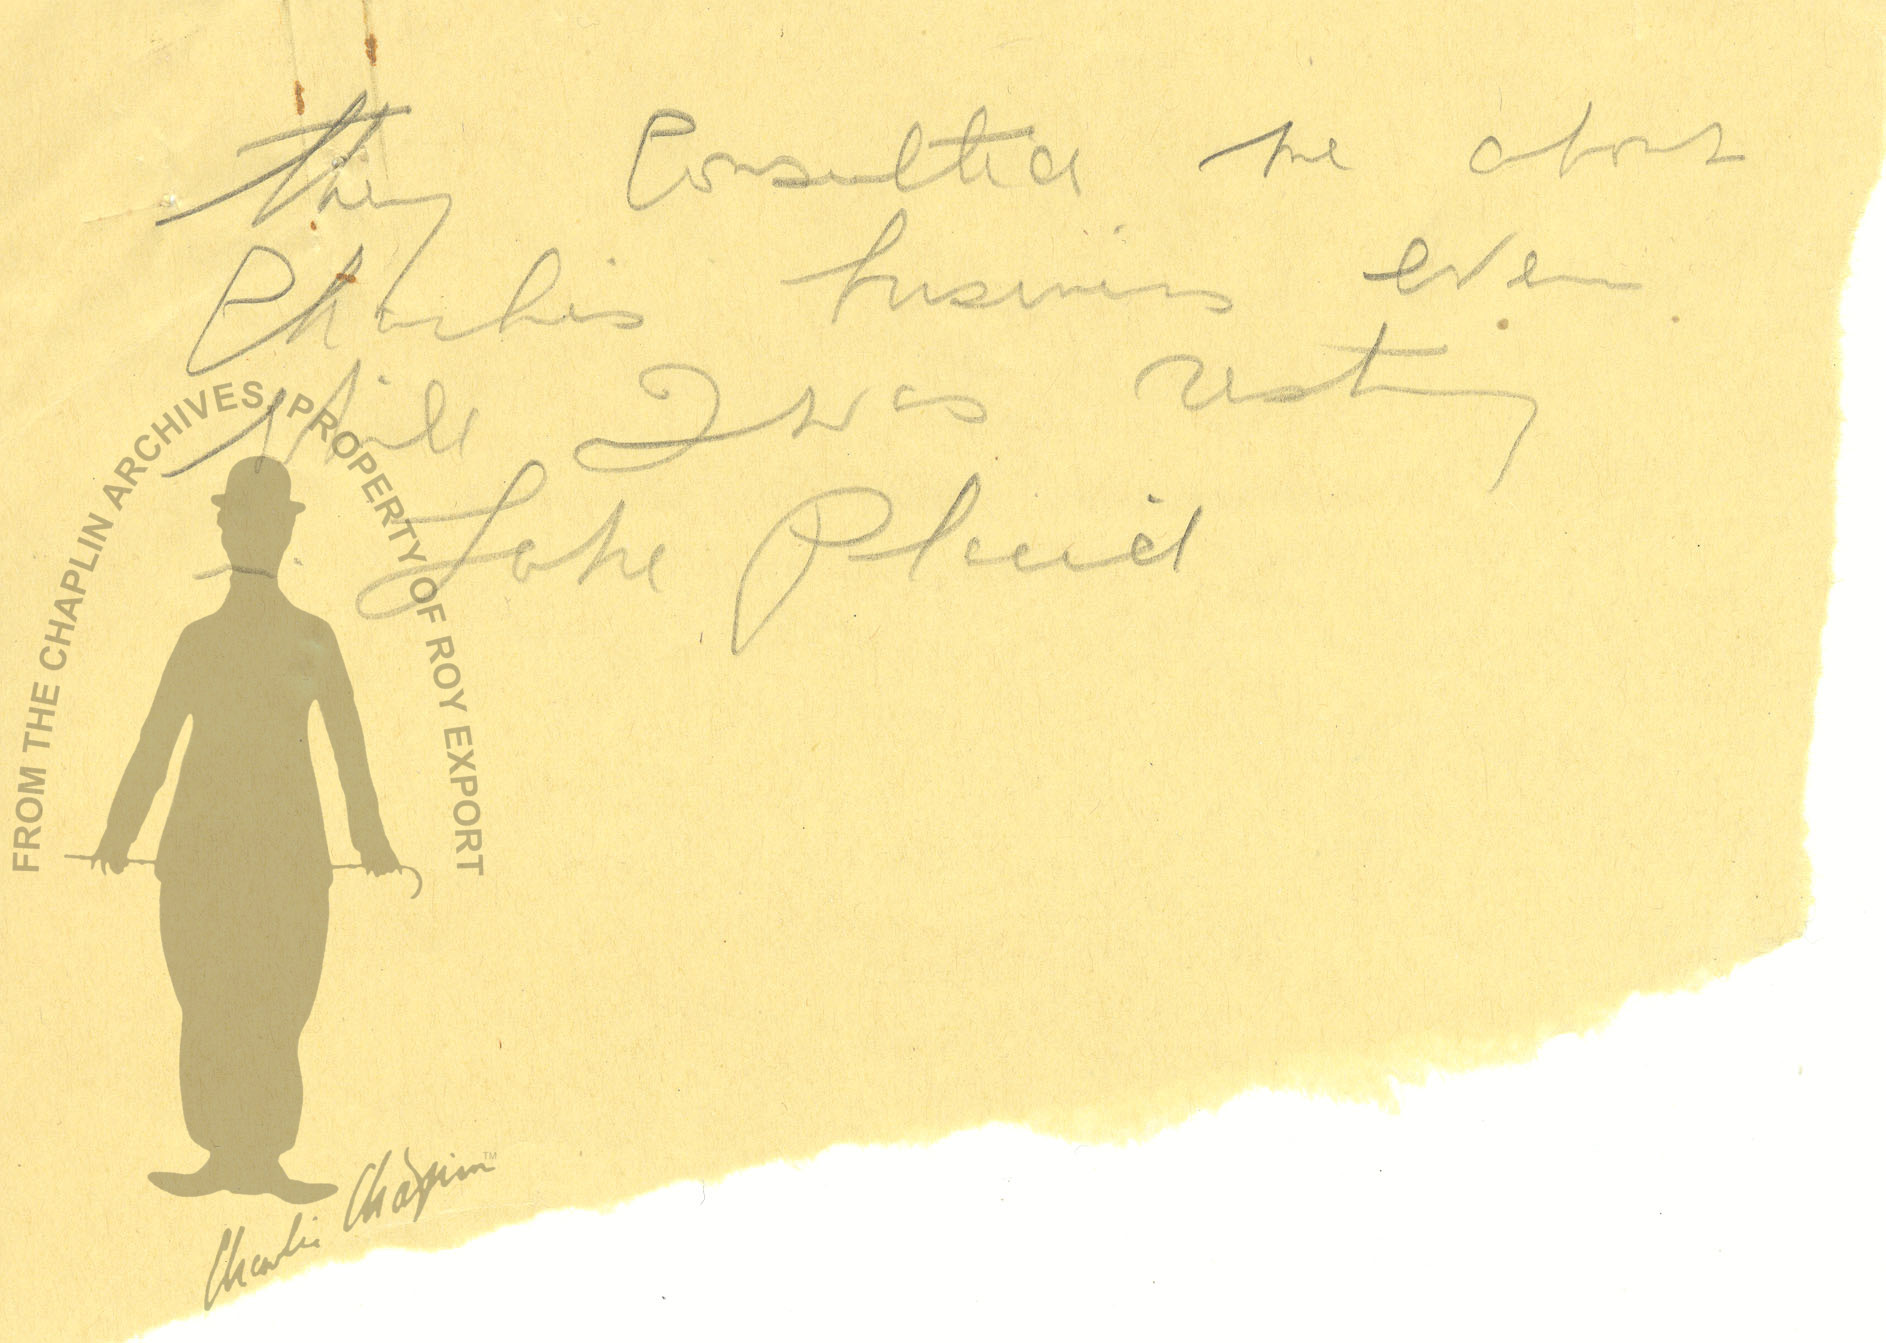 they Consulted me about
Charlies business even
while I was resting
Lake Placid
FROM THE CHAPLIN ARCHIVES, PROPERTY OF ROY EXPORT
Charlie Chaplin™